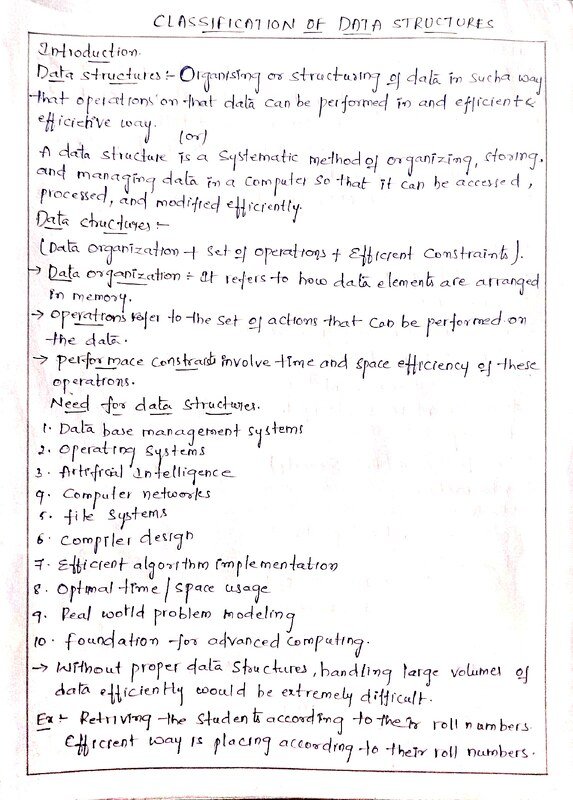 CLASSIFICATION OF DATA STRUCTURES
Introduction.
Data structures :- Organising or structuring of data in sucha way
that operations on that data can be performed in and efficient &
efficietive way.
(or)
A data structure is a systematic method of organizing, storing,
and managing data in a computer so that it can be accessed,
processed, and modified efficiently.
Data chuctures :-
(Data organization + set of operations + Efficient Constraints).
→ Data organization :- It refers to how data elements are arranged
in memory.
→ operations refer to the set of actions that can be performed on
the data.
→ performace constraists involve time and space efficiency of these
operations.
Need for data structures.
1. Data base management systems
2. Operating systems
3. Artificial Intelligence
4. Computer networks
5. file systems
6. Compiler design
7. Efficient algorithm implementation
8. Optimal time / space usage
9. Real world problem modeling
10. foundation for advanced computing.
→ Without proper data structures, handling large volumes of
data efficiently would be extremely difficult.
Ex :- Retriving the students according to their roll numbers.
Efficient way is placing according to their roll numbers.